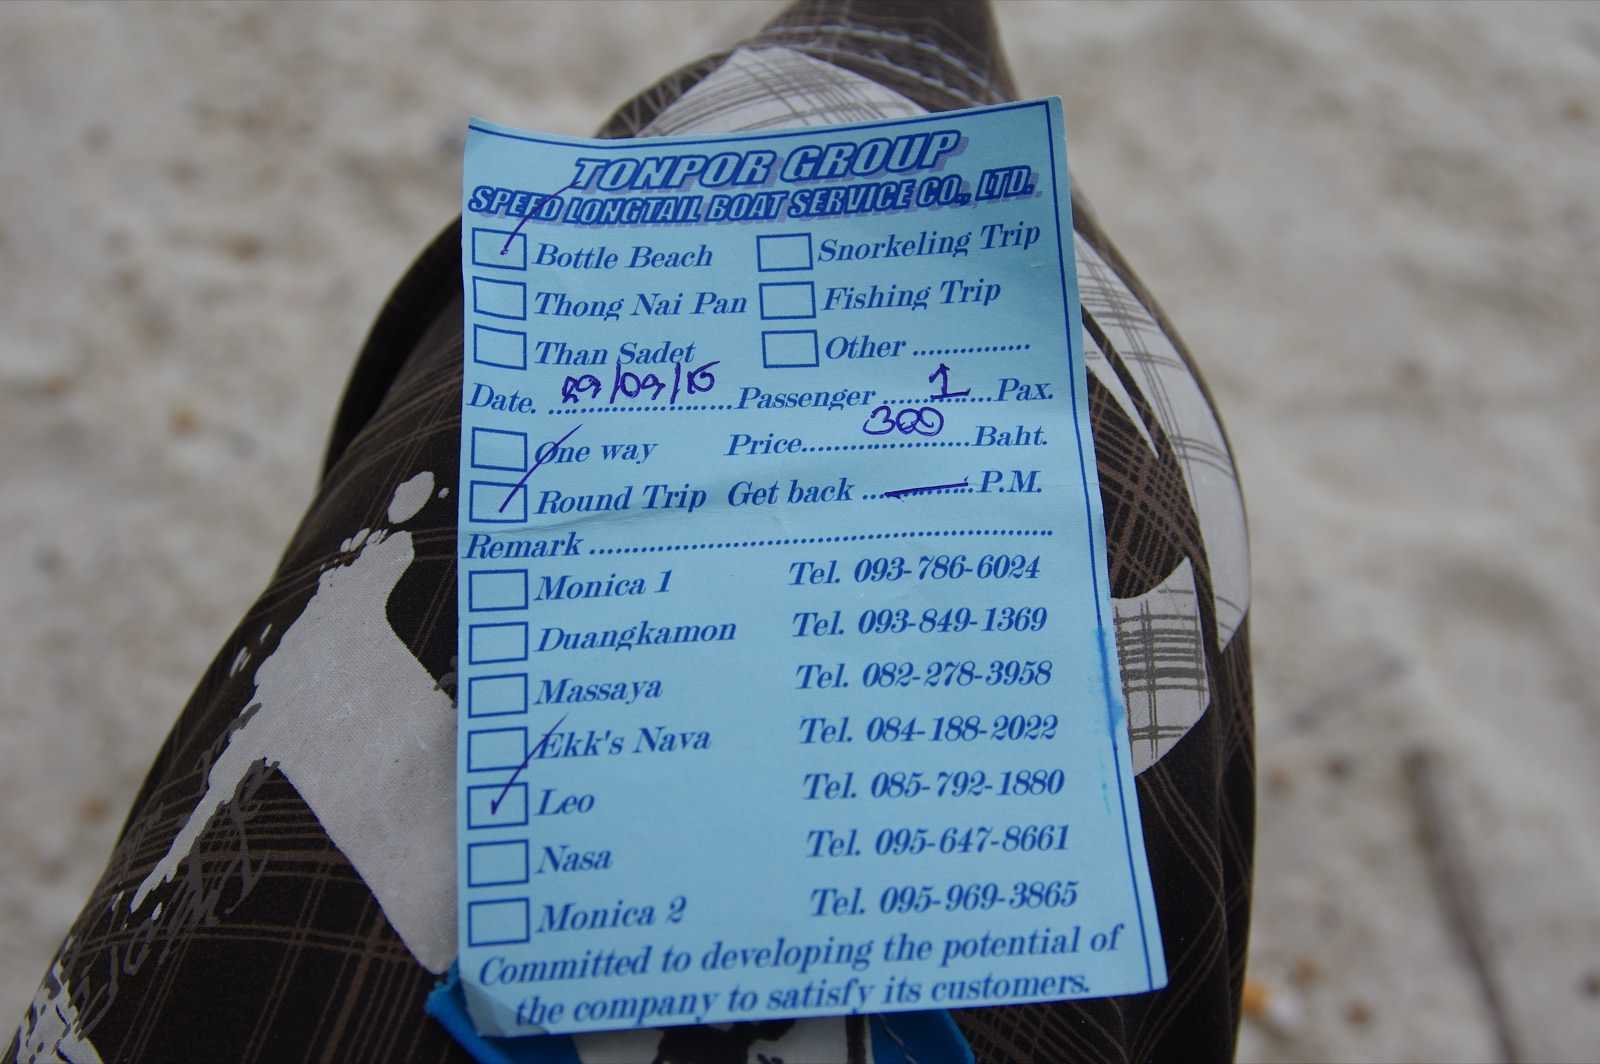 TONPOR GROUP
SPEED LONGTAIL BOAT SERVICE CO., LTD.
Bottle Beach Snorkeling Trip
Thong Nai Pan Fishing Trip
Than Sadet Other ...............
Date. ...................... Passenger .............. 1 Pax.
One way Price.................... 300 Baht.
Round Trip Get back .............. P.M.
Remark ........................................................
Monica 1 Tel. 093-786-6024
Duangkamon Tel. 093-849-1369
Massaya Tel. 082-278-3958
Ekk's Nava Tel. 084-188-2022
Leo Tel. 085-792-1880
Nasa Tel. 095-647-8661
Monica 2 Tel. 095-969-3865
Committed to developing the potential of
the company to satisfy its customers.